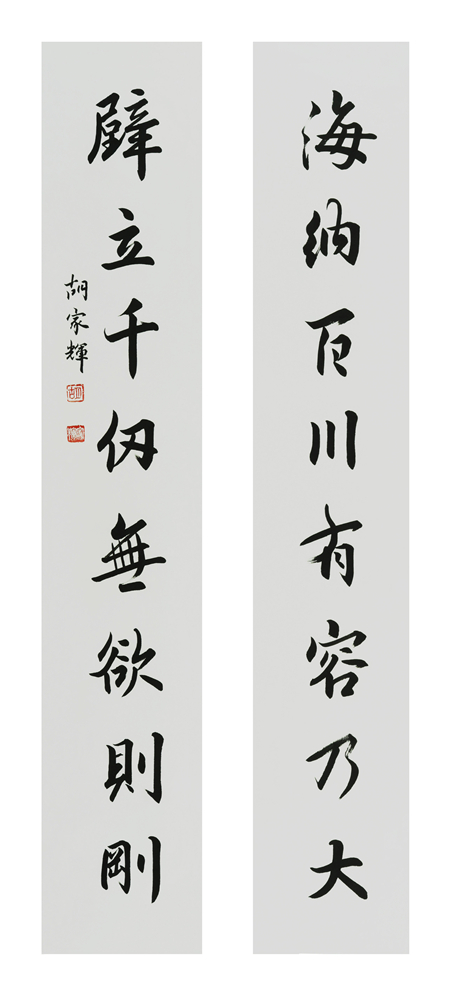 海納百川有容乃大
壁立千仞無欲則剛
胡家輝